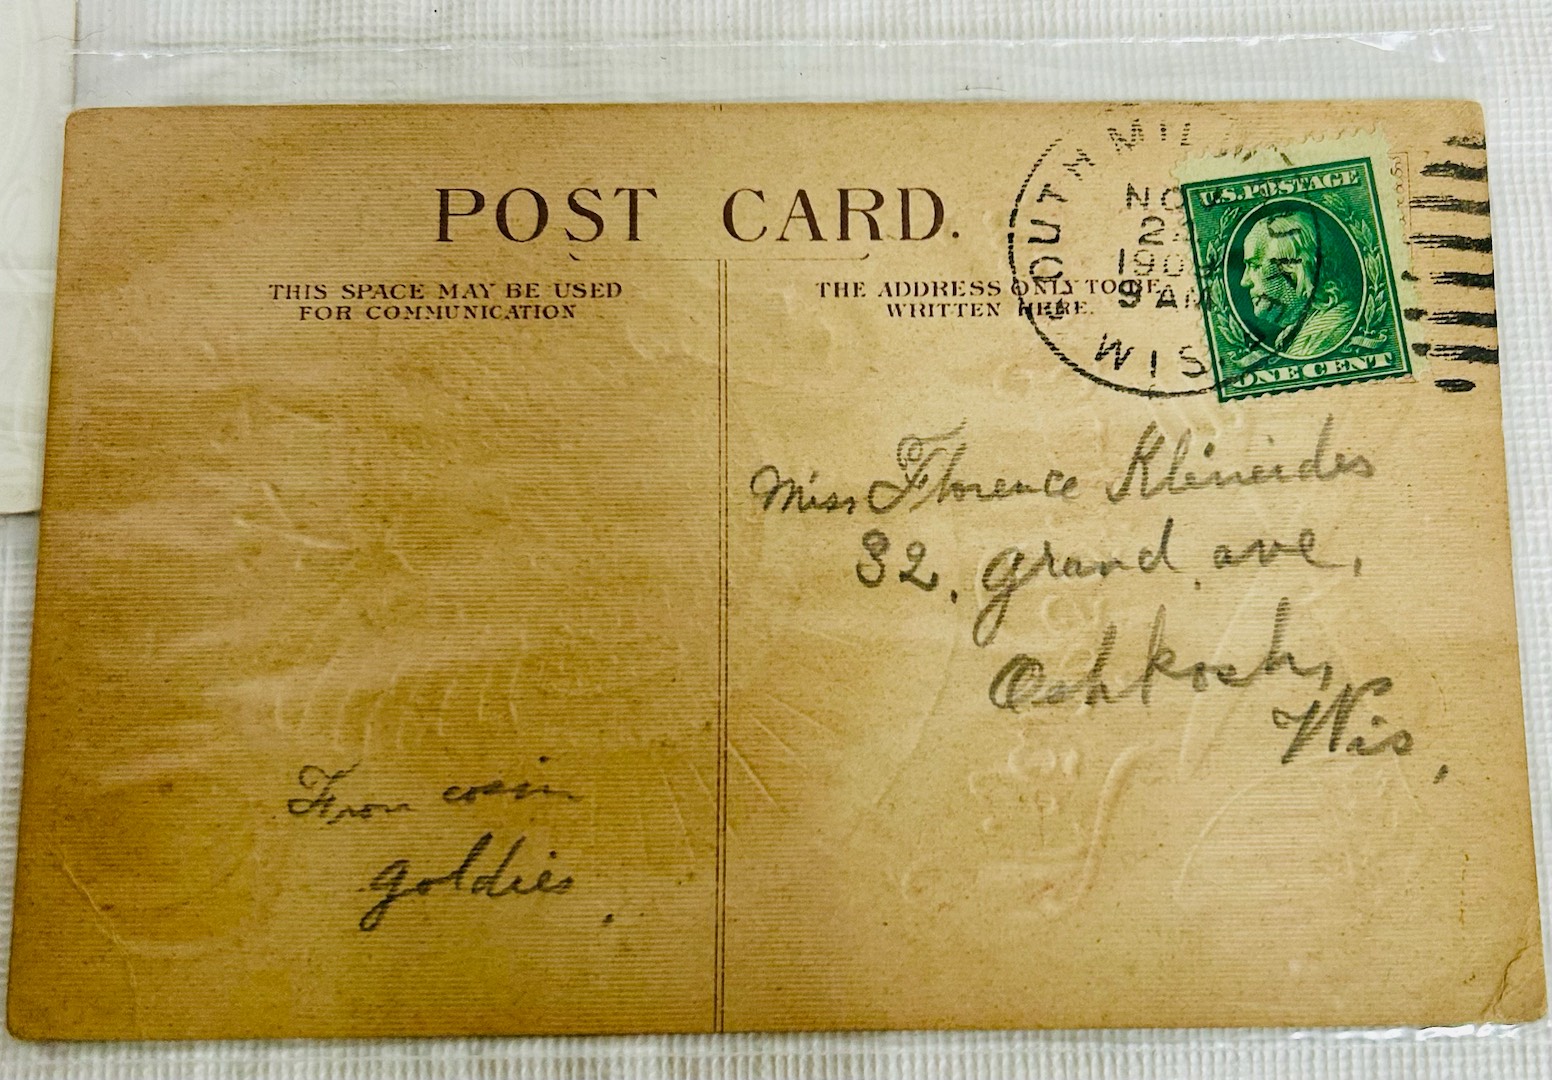 POST CARD.
THIS SPACE MAY BE USED
FOR COMMUNICATION
THE ADDRESS ONLY TO BE
WRITTEN HERE.
SOUTH MIL
NO
2
1909
9 AM
WIS.
U.S. POSTAGE
ONE CENT
Miss Florence Kleineides
32, grand ave,
Oshkosh,
Wis,
From cosin
goldies,